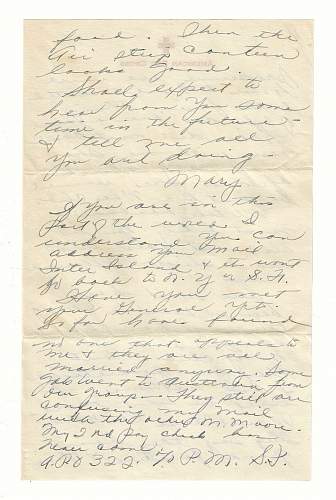 food. Then the
Air strip canteen
looks good.
Shall expect to
hear from you some
time in the future -
& tell me all
you are doing -
Mary
If you are in this
part of the world I
understand you can
address your mail
Inter Island & it wont
go back to N. Y or S. F.
Have you met
your General yet.
So far have found
no one that appeals to
me & they are all
married anyway. Some
gals went to Australia from
our group. They still are
confusing my mail
with the other M. Moore.
My 2nd pay check has
never come
A.P.O 322. % P. M. S.F.